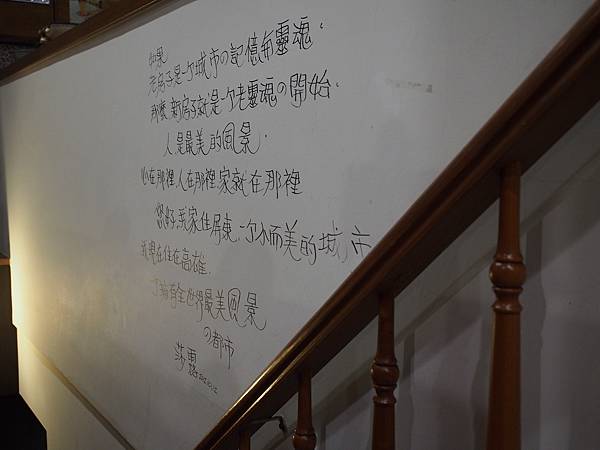 如果
老房子是一个城市の記憶和靈魂。
那麼,新房子就是一个老靈魂の開始。
人是最美的風景.
心在那裡人在那裡家就在那裡
您好,我家住屏東,一个小而美的城市
我現在住在高雄.
擁有全世界最美風景
の都市